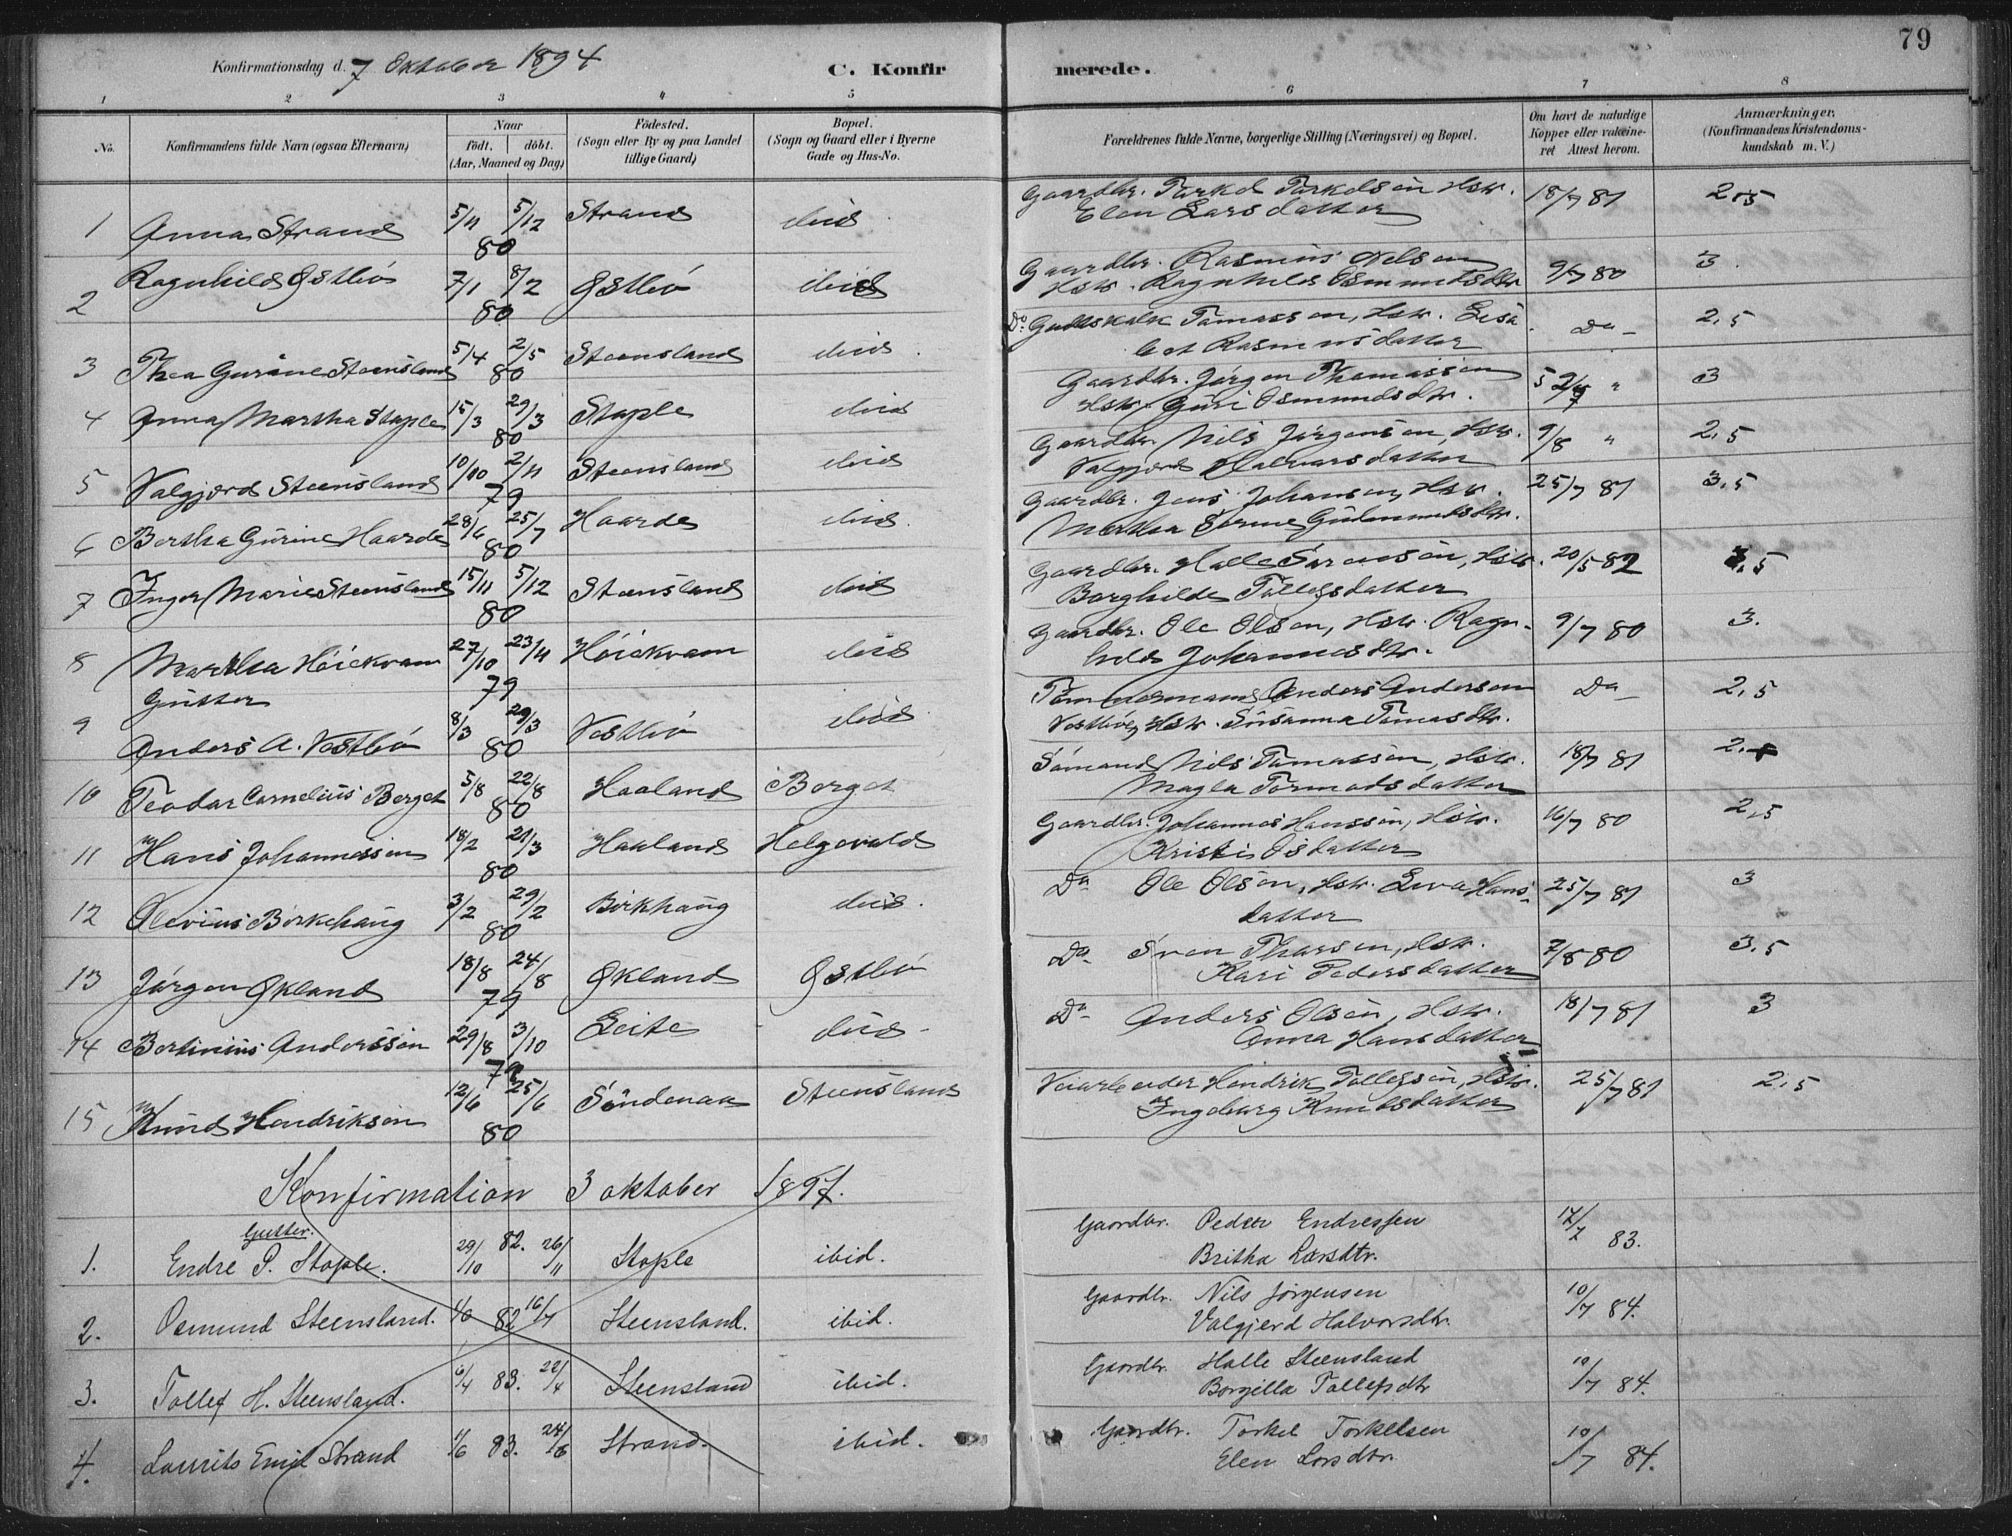 79
Konfirmationsdag d. 7 Oktober 1894 C. Konfir merede.
1 2 3 4 5 6 7 8
No. Konfirmandens fulde Navn (ogsaa Efternavn) Naar födt. döbt. (Aar, Maaned og Dag) Födested. (Sogn eller By og paa Landet tillige Gaard) Bopæl. (Sogn og Gaard eller i Byerne Gade og Hus-No. Forældrenes fulde Navne, borgerlige Stilling (Næringsvei) og Bopæl. Om havt de naturlige Kopper eller vakcineret Attest herom. Anmærkninger. (Konfirmandens Kristendomskundskab m. V.)
1 Anna Strand 5/11 5/12 80 Strand ibid Gaardbr. Torkel Torkelsøn Hstr. Elen Larsdatter 18/7 81 2,5
2 Ragnhild Østbø 7/1 8/2 80 Østbø ibid Gaardbr. Rasmus Nelsen Hstr. Ragnhild Osmundsdtr 9/7 80 3
3 Thea Gurine Steensland 5/4 2/5 80 Steensland ibid Do Gudskalk Tomassen, Hstr. Lisabet Rasmusdatter Do 2,5
4 Anna Martha Stople 15/3 29/3 80 Stople ibid Gaardbr. Jørgen Thomassen Hstr Guri Osmundsdtr. " 3
5 Valgjerd Steensland 10/10 2/11 79 Steensland ibid Gaardbr. Nils Jørgensen, Hstr. Valgjerd Halvorsdatter 9/8 " 2,5
6 Bertha Gurine Haarde 28/6 25/7 80 Haarde ibid. Gaardbr. Jens Johansen, Hstr. Martha Serine Gudmundsdtr. 25/7 81 3,5
7 Inger Marie Steensland 15/11 5/12 80 Steensland ibid Gaardbr. Halle Sørensøn, Hstr. Borghilde Tollefsdatter 20/5 82 ,5
8 Martha Höiekvam 27/10 23/11 79 Höiekvam ibid Gaardbr. Ole Olsen, Hstr. Ragnhild Johannesdtr. 9/7 80 3.
Gutter
9 Anders A. Vestbø 8/3 29/3 80 Vestbø ibid Tömmermand Anders Andersen Vestbø, Hstr. Susanna Tomasdtr. Do 2,5
10 Teodor Cornelius Berget 5/8 22/8 80 Haaland Berget Sömand Nils Tomassøn, Hstr. Magla Tormodsdatter 18/7 81 2.
11 Hans Johannessen 18/2 21/3 80 Haaland Helgevold Gaardbr. Johannes Hanssøn, Hstr. Kristi Osdatter 16/7 80 2,5
12 Olevius Birkehaug 3/2 29/2 80 Birkhaug ibid. Do Ole Olsøn, Hstr. Eva Hansdatter 25/7 81 3
13 Jørgen Økland 18/8 24/8 79 Økland Østbø Do Sven Thorsen, Hstr. Kari Pedersdatter 7/8 80 3.5
14 Bertinius Anderssøn 29/8 3/10 79 Leite ibid Do Anders Olsøn, Hstr. Anna Hansdatter 18/7 81 3
15 Knud Hendriksøn 12/6 25/6 80 Söndenaa Steensland Veiarbeider Hendrik Tollefsøn, Hstr. Ingeborg Knudsdatter 25/7 81 2,5
Konfirmation 3 oktober 1897.
Gutter.
1. Endre P. Stople. 29/10 82. 26/11 Stople ibid. Gaardbr. Peder Endressen Britha Larsdtr. 83.
2. Osmund Steensland. 82 16/7 Steensland. ibid. Gaardbr. Nils Jörgensen Valgjerd Halvorsdtr. 10/7 84.
3. Tollef H. Steensland. 83. 22/4 Steensland ibid. Gaardbr. Halle Steensland Borgilla Tollefsdtr 10/7 84.
4. Laurits Emil Strand 83. 24/6 Strand. ibid. Gaardbr. Torkel Torkelsen Elen Larsdtr. 10/7 84.